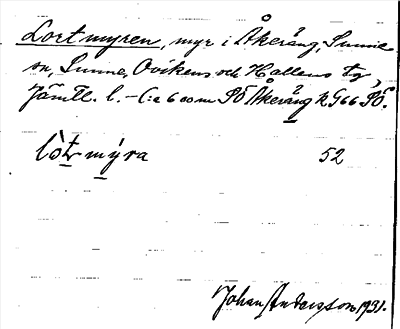 Lortmyren, myr i Åkeräng, Sunne
sn, Sunne, Ovikens och Hallens tg,
Jämtl. l. – C:a 600 m SÖ Åkeräng KG66 SÖ.
lòtmýra 52
Johan Andersson 1931.